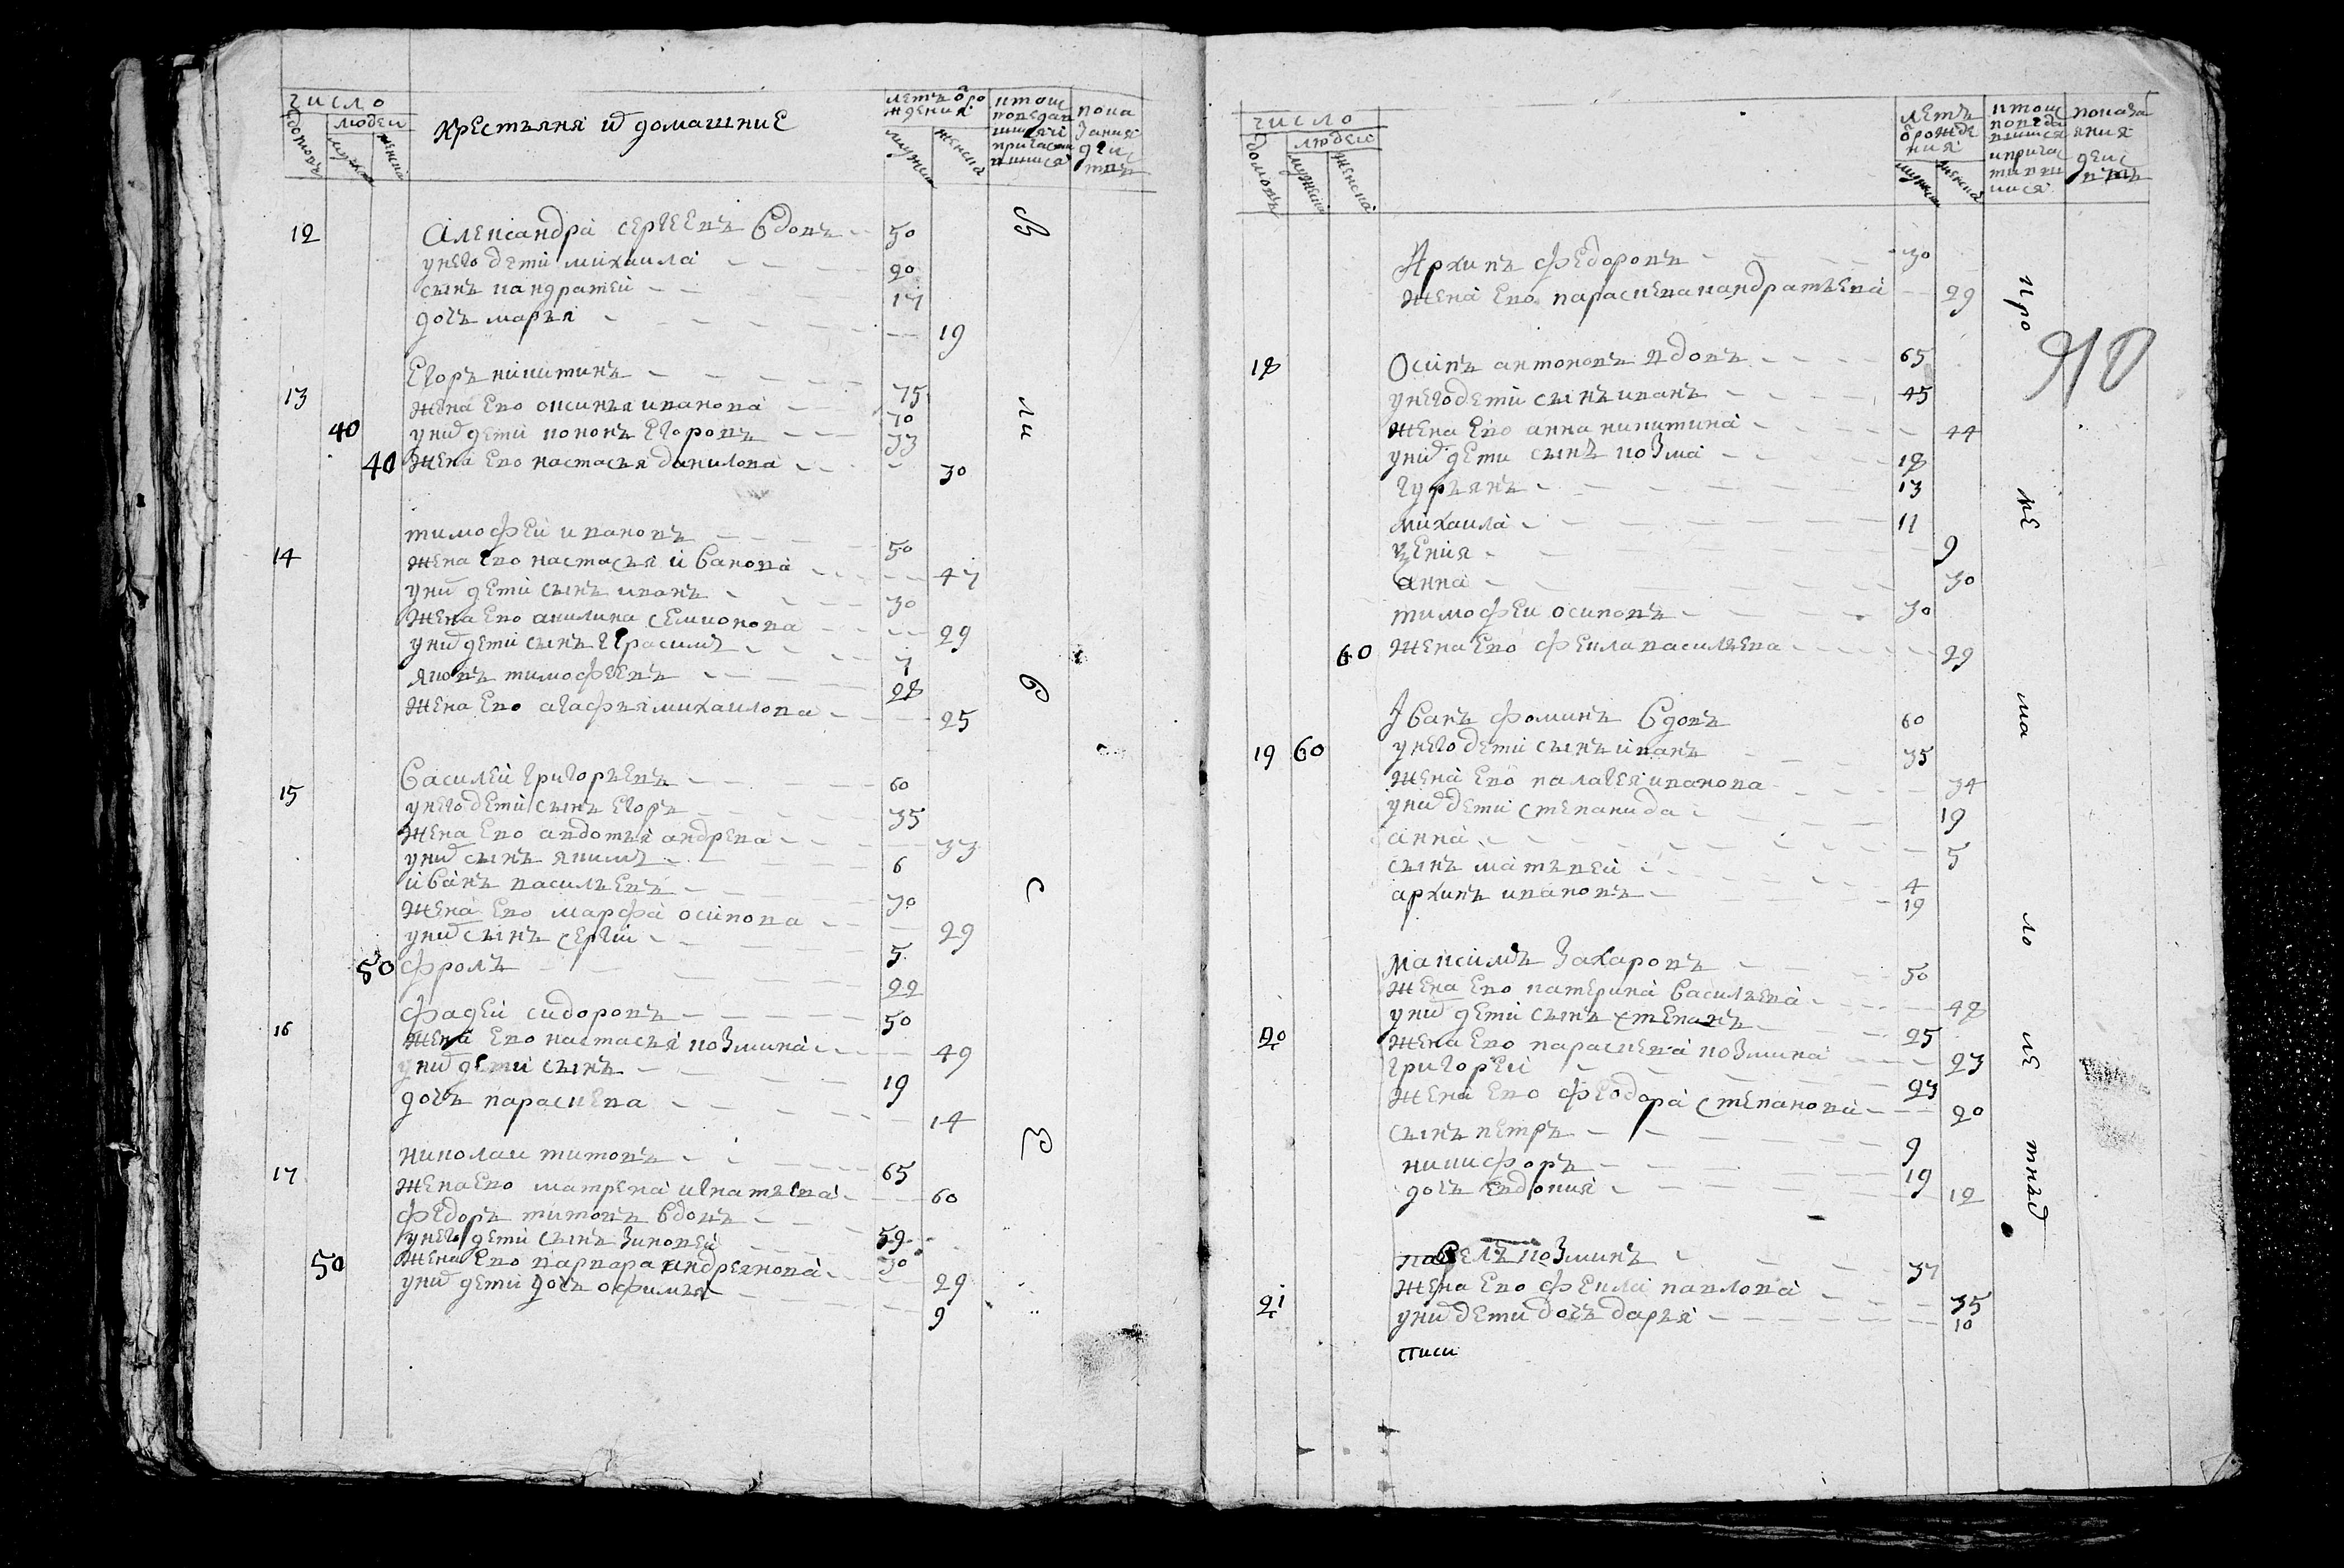 число
людей
домовъ
мужска
женска
крестьяня и домашние
летъ о рождения
мужска
женска
12 Александра сергеевъ вдовъ 50
унего дети михаила 20
сынъ кандратей 17
дочь марья 19
Егоръ никитинъ 75
13 жена ево оксинья иванова 70
40 уних дети кононъ егоровъ 33
40 жена ево настасья данилова 30
тимофей ивановъ 50
14 жена ево настасья иванова 47
уних дети сынъ иванъ 30
жена ево акилина семионова 29
уних дети сынъ герасимъ 7
яковъ тимофеевъ 28
жена ево агафья михаилова 25
Василей григорьевъ 60
15 унего дети сынъ егоръ 35
жена ево авдотья андрева 33
уних сынъ якимъ 6
иванъ васильевъ 30
жена ево марфа осипова 29
уних сынъ сергий 5
50 фролъ 22
фадей сидоровъ 50
16 жена ево настасья козмина 49
уних дети сынъ 19
дочь параскева 14
николаи титовъ 65
17 жена ево матрена игнатьева 60
федоръ титовъ вдовъ 59
унего дети сынъ зиновей 30
50 жена ево варвара андреянова 29
уних дети дочь офимья 9
число
людей
домовъ
мужска
женска
летъ о рождения
мужска
женска
Архипъ федоровъ 30
жена ево параскева кандратьева 29
40
18 Осипъ антоновъ вдовъ 65
унего дети сынъ иванъ 45
жена ево анна никитина 44
уних дети сынъ козма 18
гурьянъ 13
михаила 11
9
анна 30
тимофеи осиповъ 30
60 жена ево фекла васильева 29
Iванъ фоминъ вдовъ 60
19 60 унего дети сынъ иванъ 35
жена ево палагея иванова 34
уних дети степанида 19
анна 5
сынъ матьвей 4
архипъ ивановъ 19
Максимъ захаровъ 50
жена ево катерина васильева 48
уних дети сынъ степанъ 25
20 жена ево параскева козмина 23
григорей 23
жена ево феодора степанова 20
сынъ петръ 9
никифоръ 19
дочь евдокия 12
павелъ козминъ 37
жена ево фекла павлова 35
21 уних дети дочь дарья 10